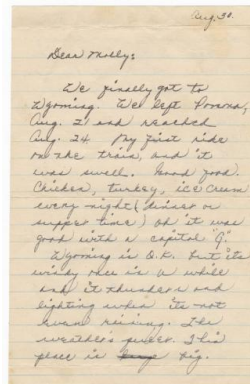 Aug. 30.
Dear Molly:
We finally got to
Wyoming. We left Pomona,
Aug. 21 and reached
Aug. 24. My first ride
on the train, and it
was swell. Good food.
Chicken, turkey, ice cream
every night (dinner or
supper time) oh it was
good with a capitol "G."
Wyoming is O.K. but its
windy once in a while
and it thunders and
lighting when its not
even raining. The
weather's queer. This
place is big.